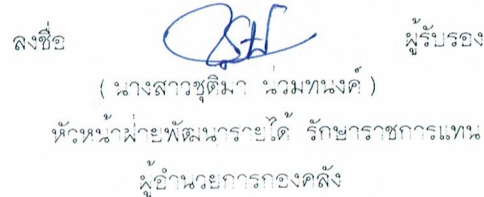 ลงชื่อ ผู้รับรอง
( นางสาวชุติมา น่วมทนงค์ )
หัวหน้าฝ่ายพัฒนารายได้ รักษาราชการแทน
ผู้อำนวยการกองคลัง